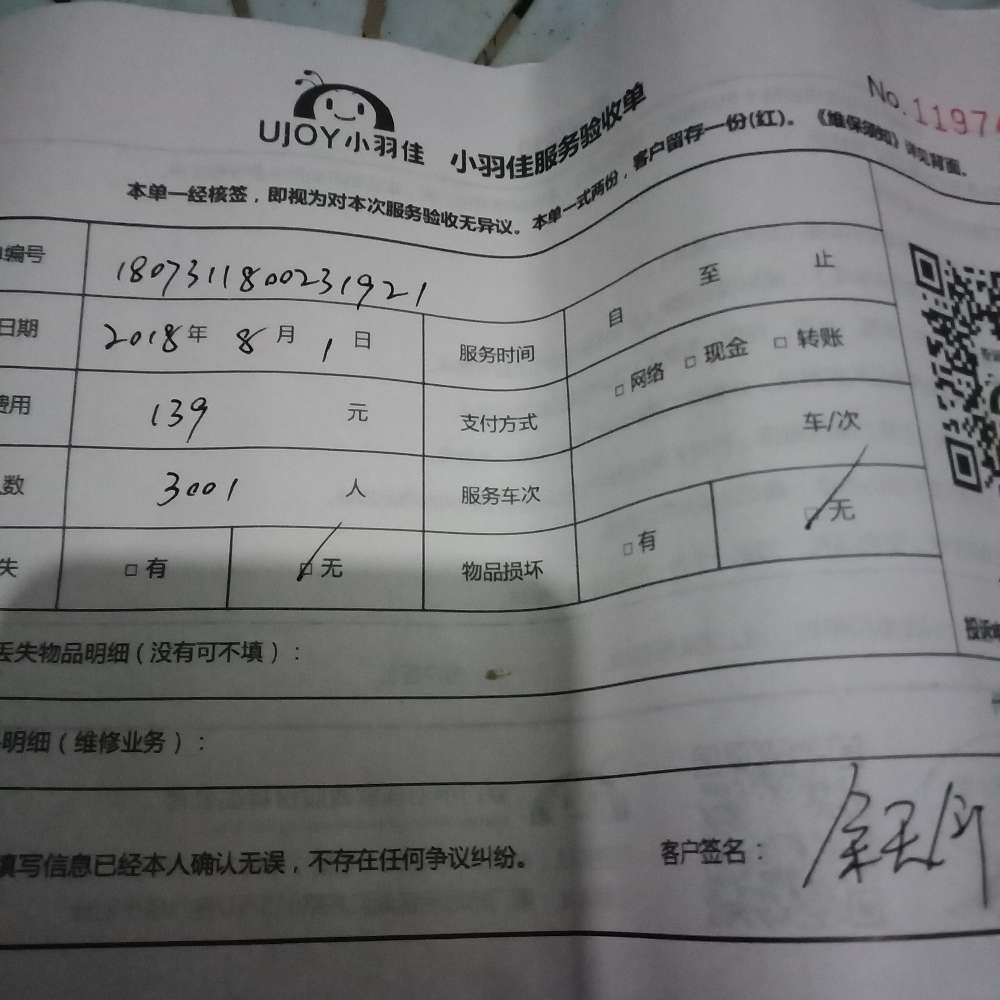 No.11974
UJOY小羽佳 小羽佳服务验收单
本单一经核签，即视为对本次服务验收无异议。本单一式两份，客户留存一份(红)。《维保须知》详见背面。
编号 180731180023 1921
日期 2018年 8月 1日 服务时间 自 至 止
费用 139 元 支付方式 □网络 □现金 □转账
数 3001 人 服务车次 车/次
失 □有 □无 物品损坏 □有 □无
丢失物品明细（没有可不填）：
明细（维修业务）：
填写信息已经本人确认无误，不存在任何争议纠纷。 客户签名：
投诉